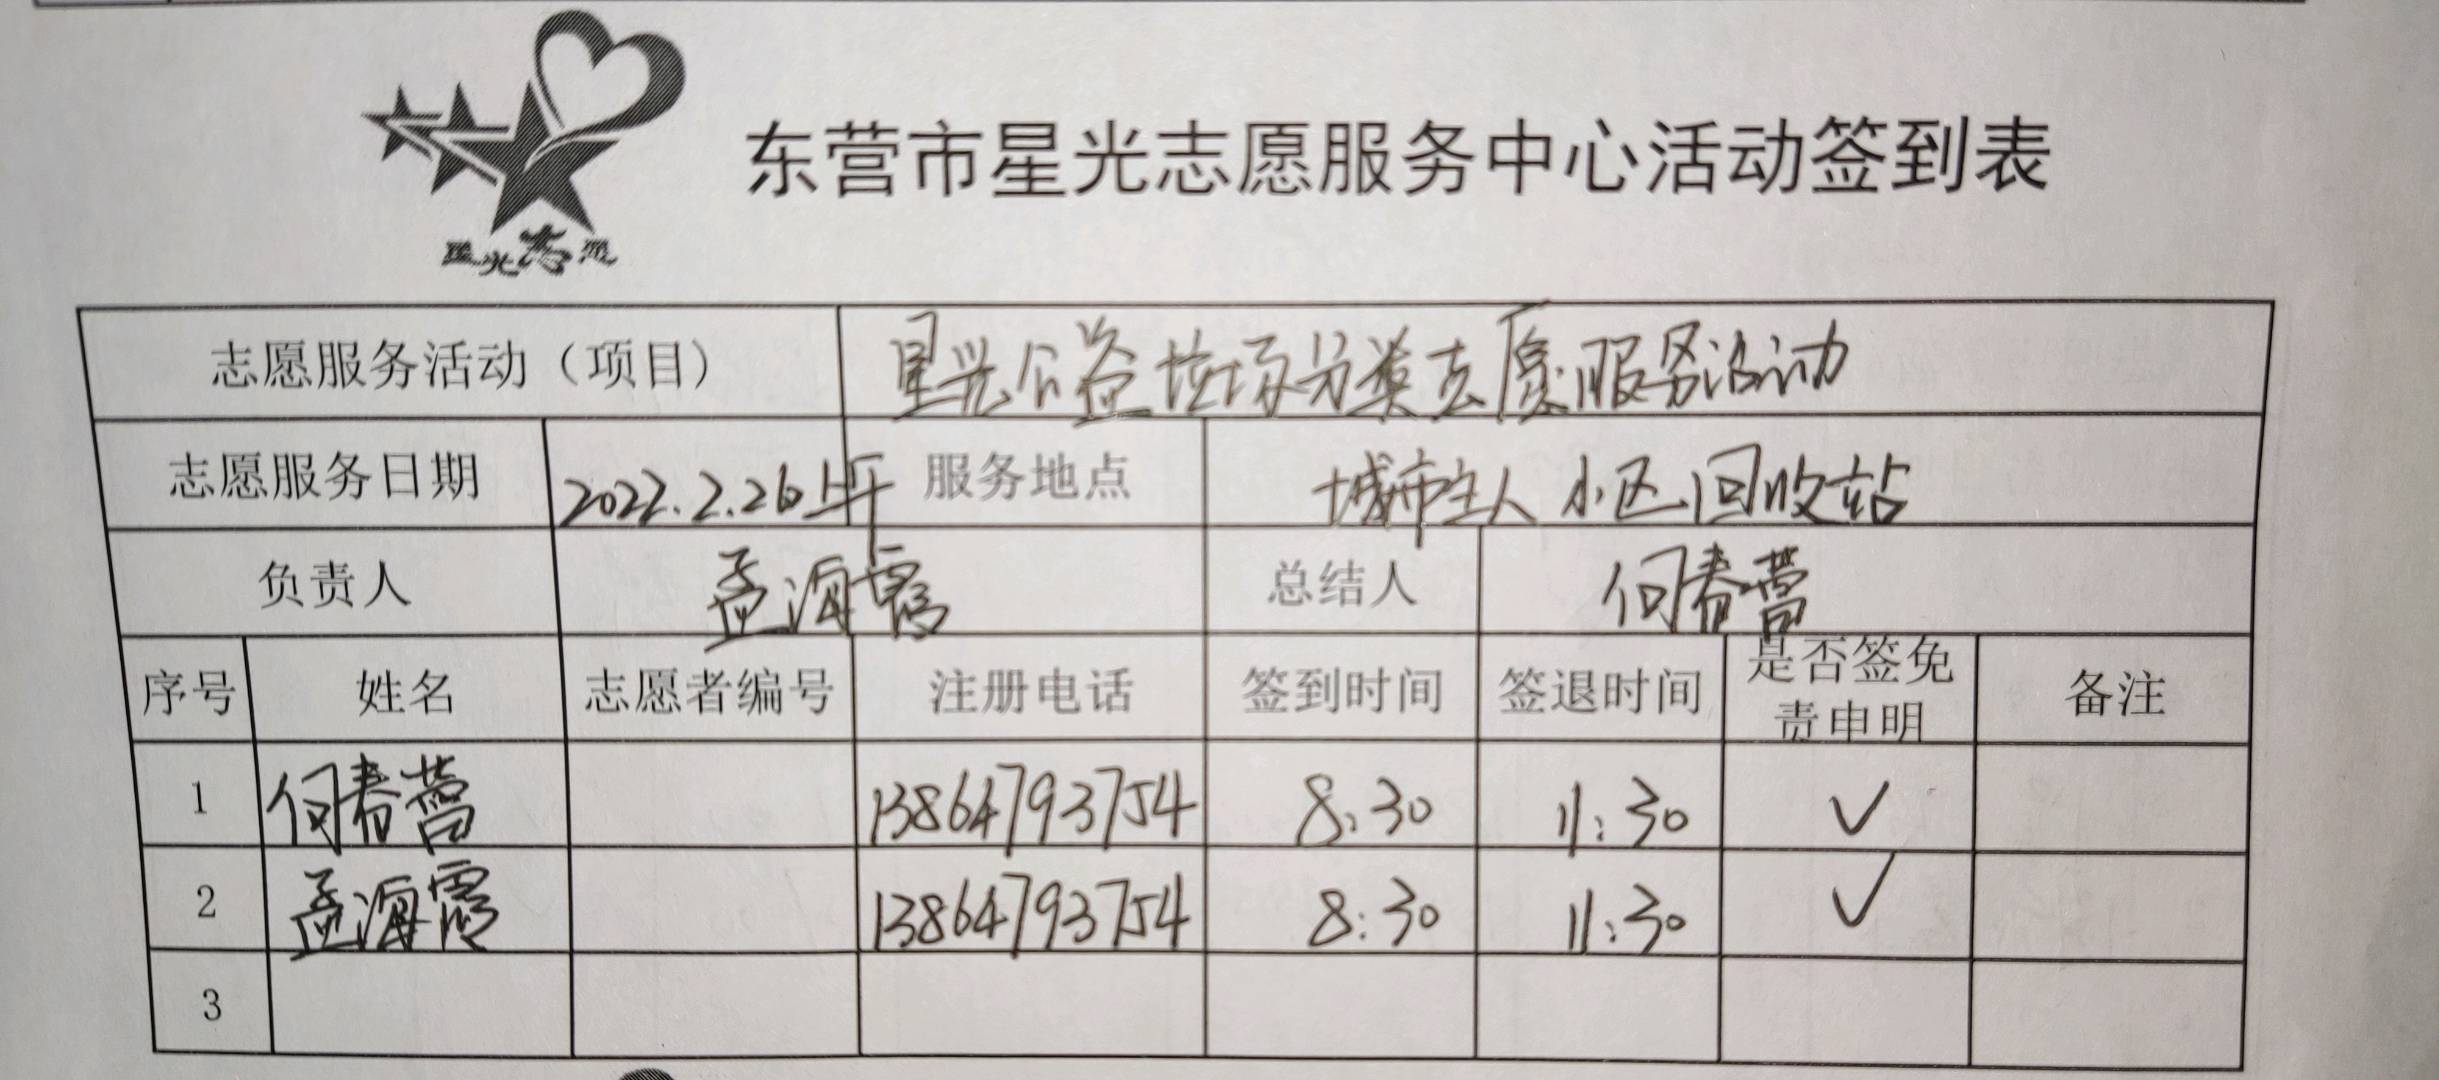 东营市星光志愿服务中心活动签到表
星光志愿
志愿服务活动（项目） 星光公益垃圾分类志愿服务活动
志愿服务日期 2022.2.26上午 服务地点 城市主人小区回收站
负责人 孟海霞 总结人 何春营
序号 姓名 志愿者编号 注册电话 签到时间 签退时间 是否签免 备注
责申明
1 何春营 13864793754 8:30 11:30 ✓
2 孟海霞 13864793754 8:30 11:30 ✓
3